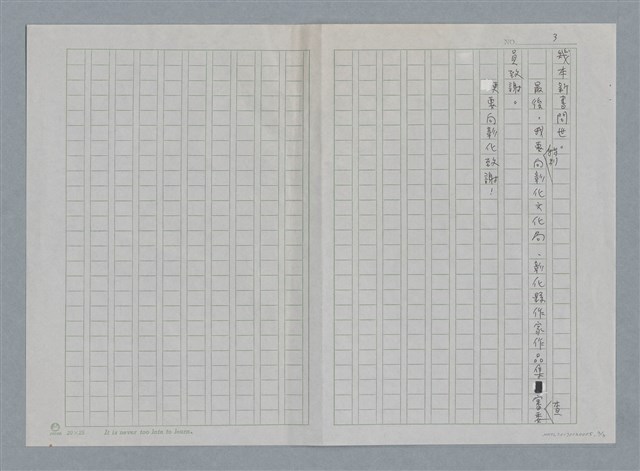 3
幾本新書問世。
最後，我要特別向彰化文化局、彰化縣作家作品集審查委
員致謝。
更要向彰化致謝！
It is never too late to learn.